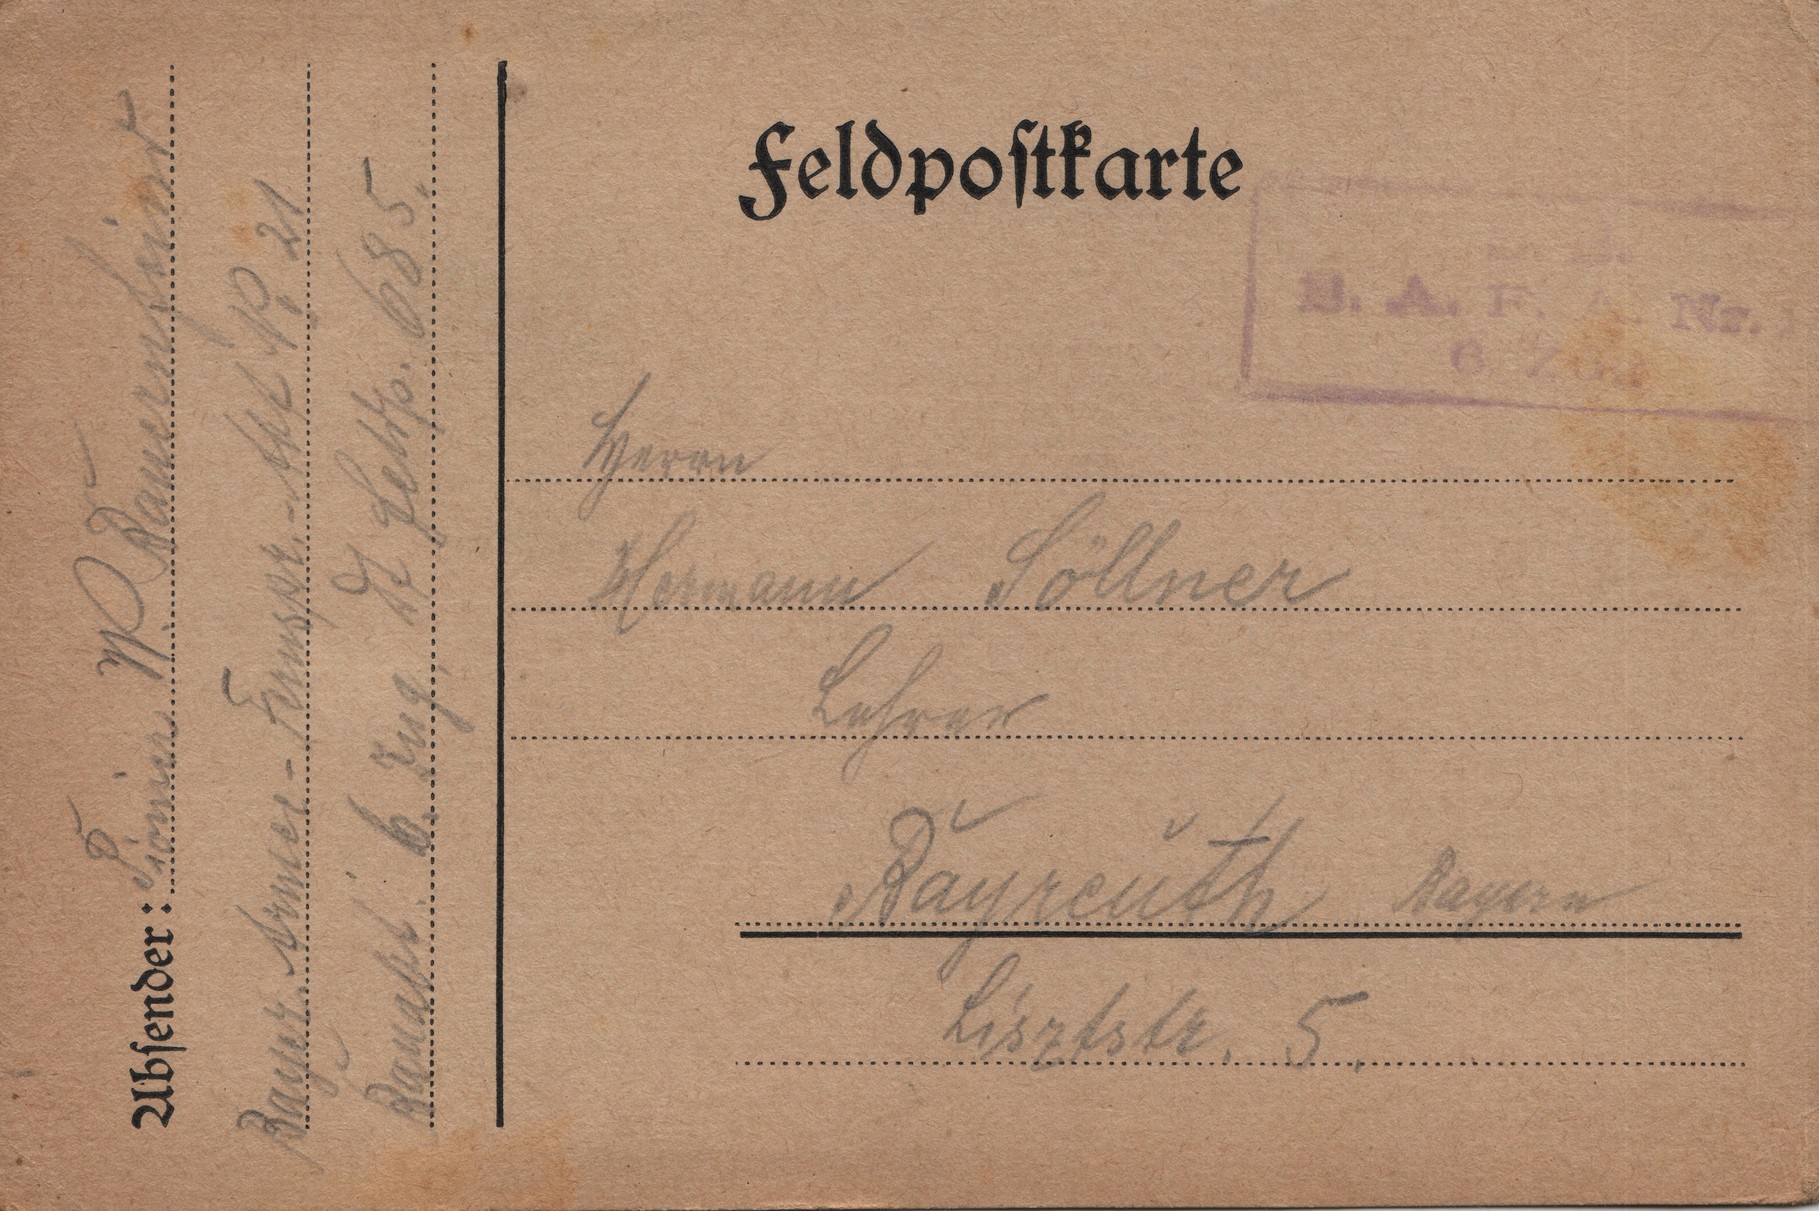 Feldpostkarte
B. A. F. A. Nr.
6. Zug
Herrn
Hermann Söllner
Lehrer
Bayreuth Bayern
Lisztstr. 5.
Absender: Pionier W. Bauernfeind
Bayer. Armee-Fernspr.-Abt. P. 21
Bauabt. 6. Zug, D. Feldp. 685.